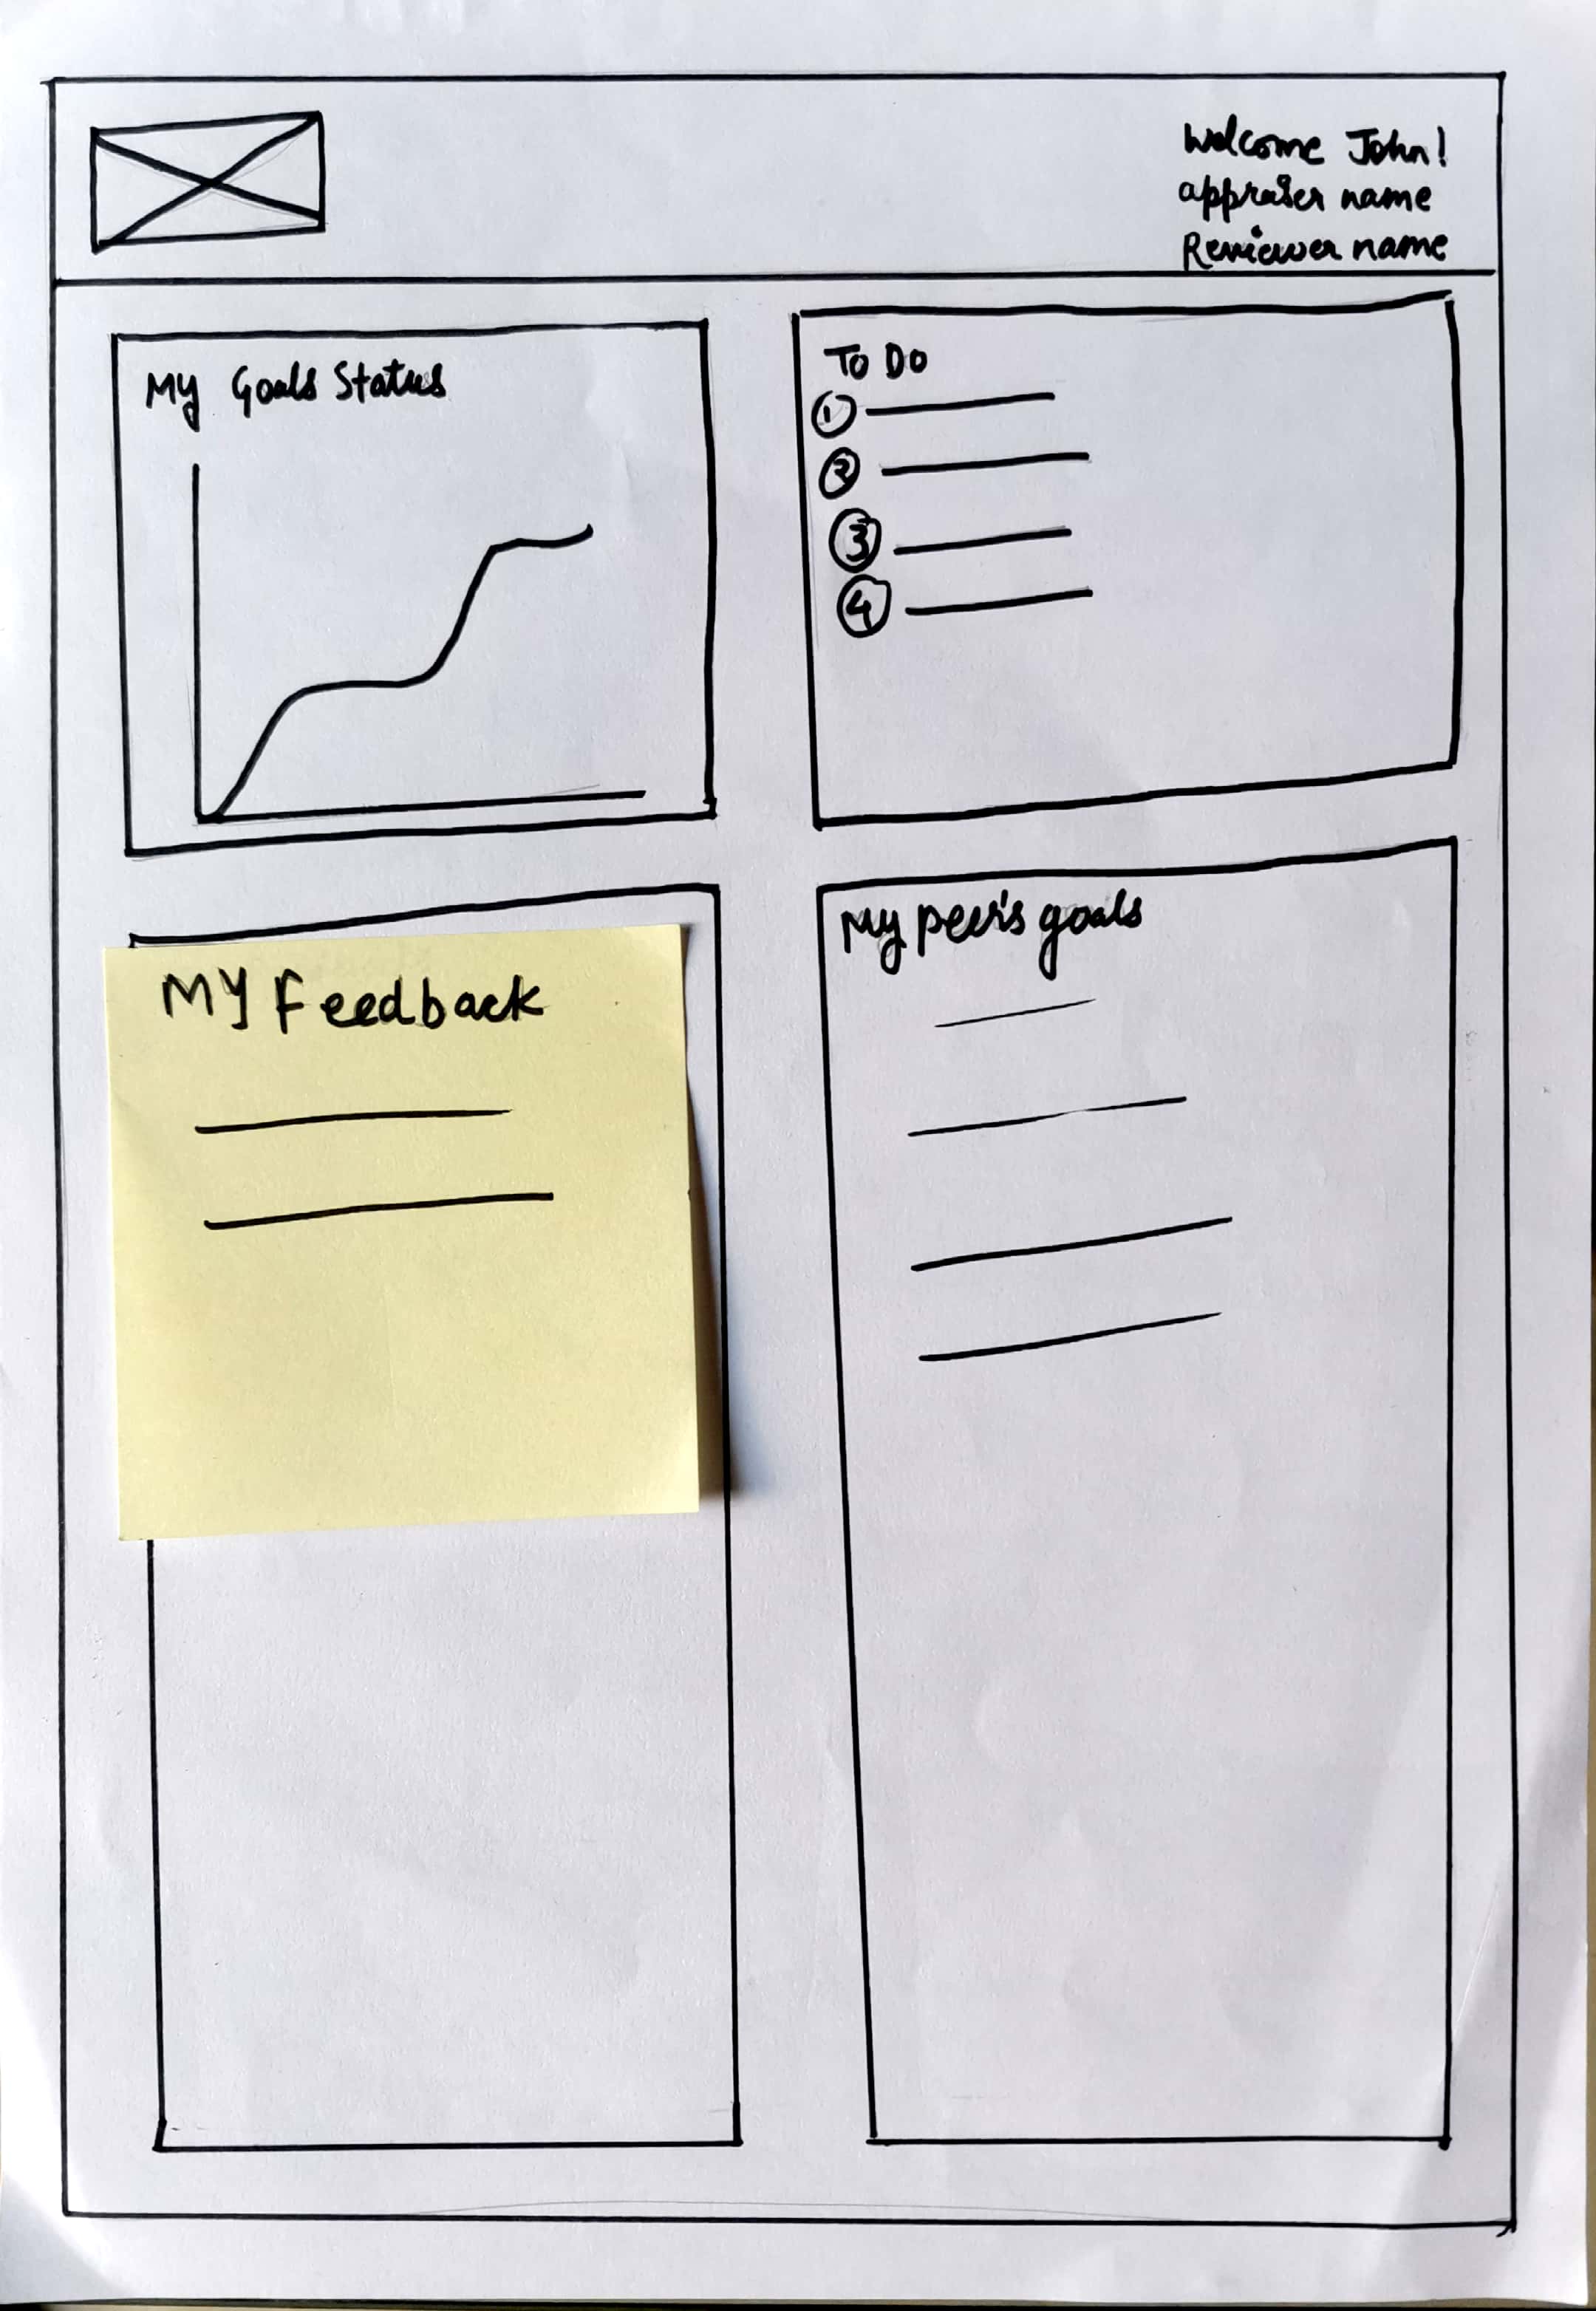 Welcome John!
appraiser name
Reviewer name
My Goals Status
To Do
1
2
3
4
My Feedback
My peer's goals